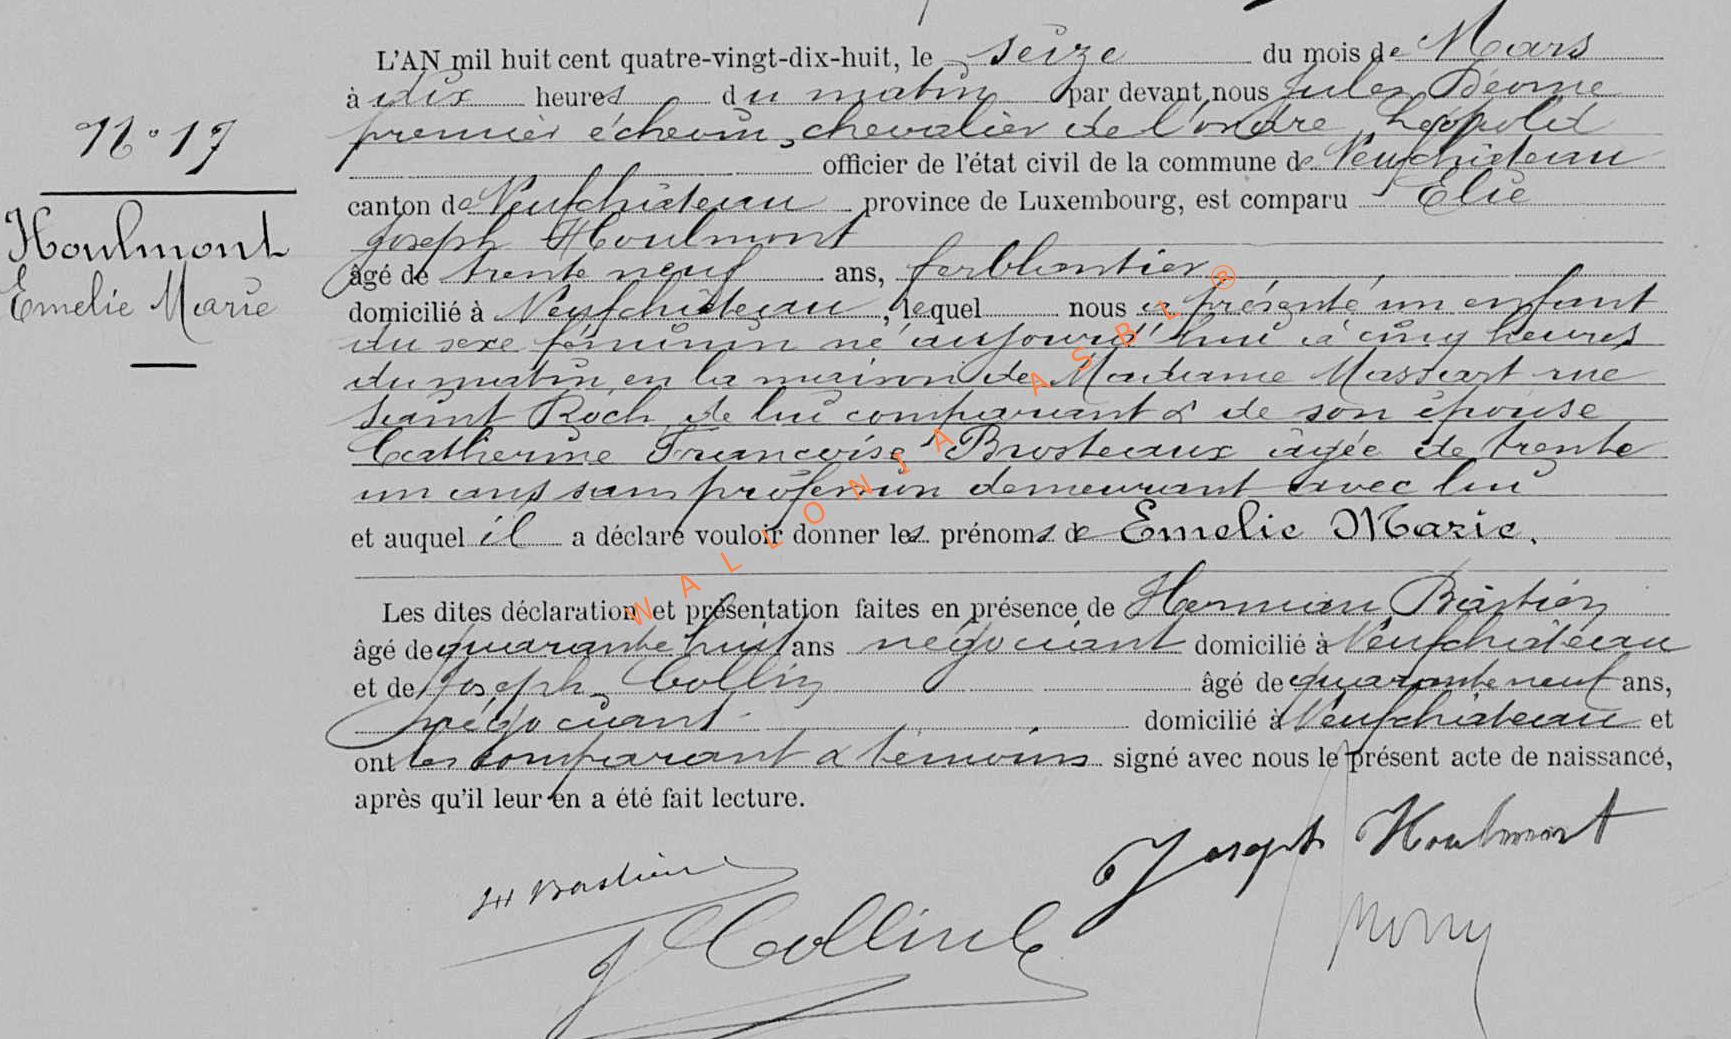 N° 17
Houlmont
Emelie Marie
L'AN mil huit cent quatre-vingt-dix-huit, le seize du mois de Mars
à dix heures du matin par devant nous Jules
premier échevin, chevalier de l'ordre Léopold
officier de l'état civil de la commune de Neufchâteau
canton de Neufchâteau province de Luxembourg, est comparu Elie
Joseph Houlmont
âgé de trente neuf ans, ferblantier
domicilié à Neufchâteau, lequel nous a présenté un enfant
du sexe féminin né aujourd'hui à cinq heures
du matin en la maison de Madame Massart rue
saint Roch, de lui comparant & de son épouse
Catherine Françoise Brosteaux âgée de trente
un ans sans profession demeurant avec lui
et auquel il a déclaré vouloir donner les prénoms de Emelie Marie.
Les dites déclaration et présentation faites en présence de Herman Bastien
âgé de quarante huit ans négociant domicilié à Neufchâteau
et de Joseph Collin âgé de quarante neuf ans,
négociant domicilié à Neufchâteau et
ont les comparant & témoins signé avec nous le présent acte de naissance,
après qu'il leur en a été fait lecture.
Joseph Houlmont
H Bastien
J Collin
WALLONIA ASBL ®